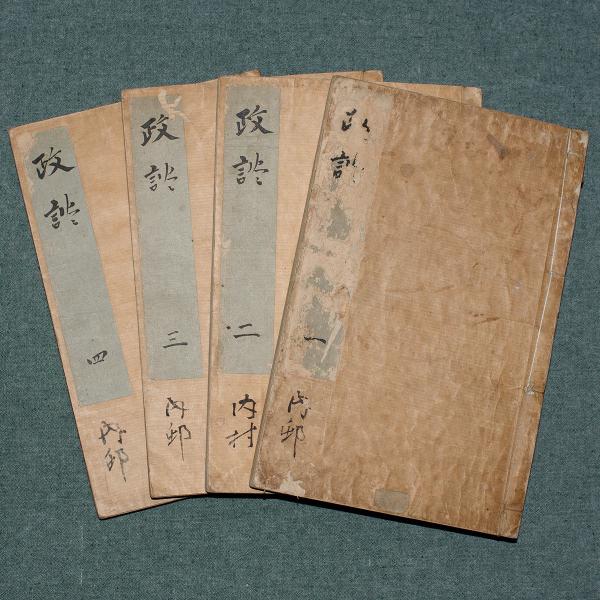 政談
一
内邨
政談
二
内村
政談
三
内邨
政談
四
内邨